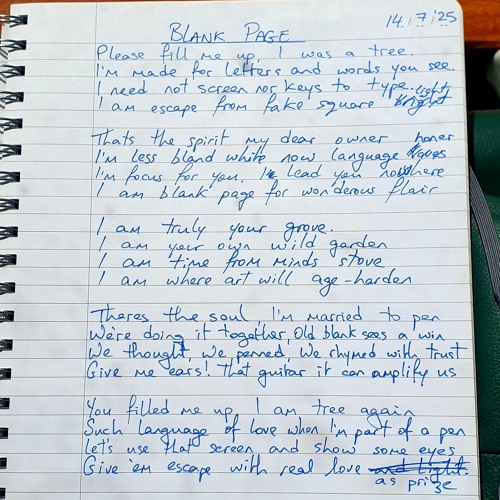 BLANK PAGE
14/7/25
Please fill me up, I was a tree.
I'm made for letters and words you see.
I need not screen nor keys to type.
I am escape from fake square light
Thats the spirit my dear owner
I'm less bland white now language
I'm focus for you, I lead you nowhere
I am blank page for wonderous flair
I am truly your grove.
I am your own wild garden
I am time from minds stove
I am where art will age-harden
Theres the soul I'm married to pen
We're doing it together, Old blank sees a win
We thought, we penned, we rhymed with trust
Give me ears! That guitar it can amplify us
You filled me up, I am tree again
Such language of love when I'm part of a pen
Let's use that screen and show some eyes
Give 'em escape with real love and light.
as prize